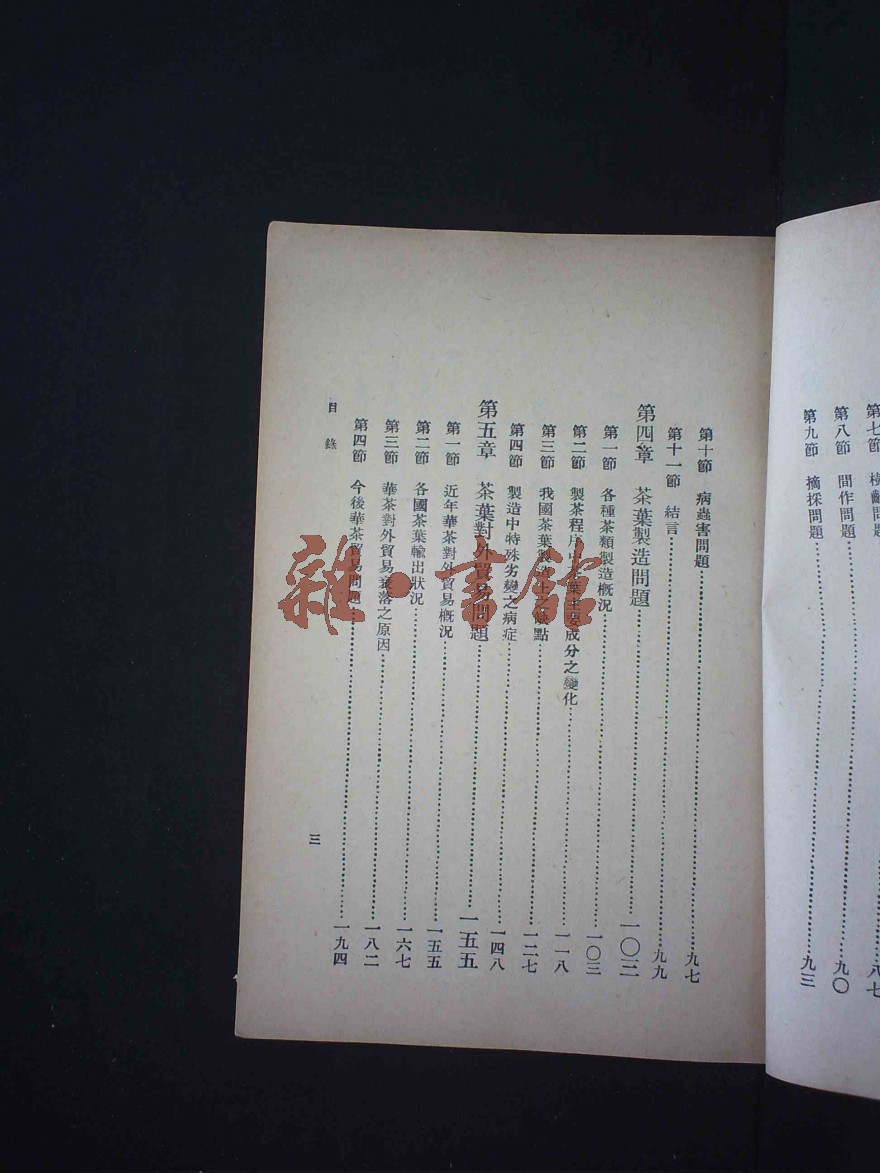 第七節
問題
八七
第八節 間作問題 九〇
第九節 摘採問題 九三
第十節 病蟲害問題 九七
第十一節 結言 九九
第四章 茶葉製造問題 一〇三
第一節 各種茶類製造概況 一〇三
第二節 製茶程序中 葉主要成分之變化 一一八
第三節 我國茶葉製造上之缺點 一二七
第四節 製造中特殊劣變之病症 一四八
第五章 茶葉對外貿易問題 一五五
第一節 近年華茶對外貿易概況 一五五
第二節 各國茶葉輸出狀況 一六七
第三節 華茶對外貿易衰落之原因 一八二
第四節 今後華茶貿易問題 一九四
目錄
三
雜·書館